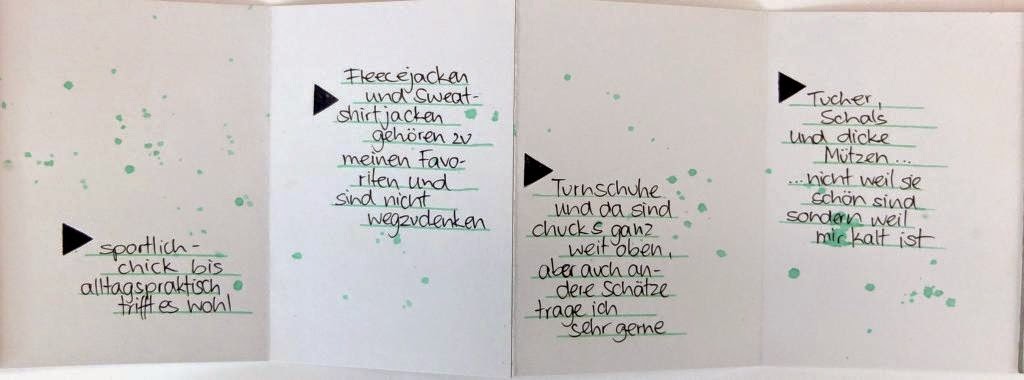 sportlich-
chick bis
alltagspraktisch
trifft es wohl
Fleecejacken
und Sweat-
shirtjacken
gehören zu
meinen Favo-
riten und
sind nicht
wegzudenken
Turnschuhe
und da sind
chucks ganz
weit oben,
aber auch an-
dere Schätze
trage ich
sehr gerne
Tücher,
Schals
und dicke
Mützen...
...nicht weil sie
schön sind
sondern weil
mir kalt ist